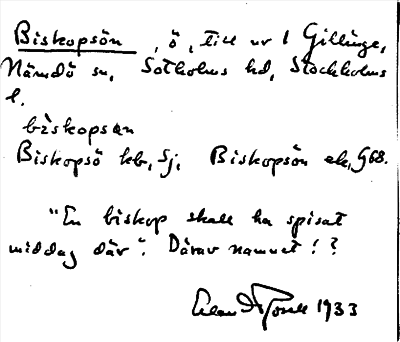 Biskopsön, ö, till nr 1 Gillinge,
Nämdö sn, Sotholms hd, Stockholms
l.
biskopsan
Biskopsö hb, Sj, Biskopsön ek, G68.
"En biskop skall ha spisat
middag där". Därav namnet!?
1933